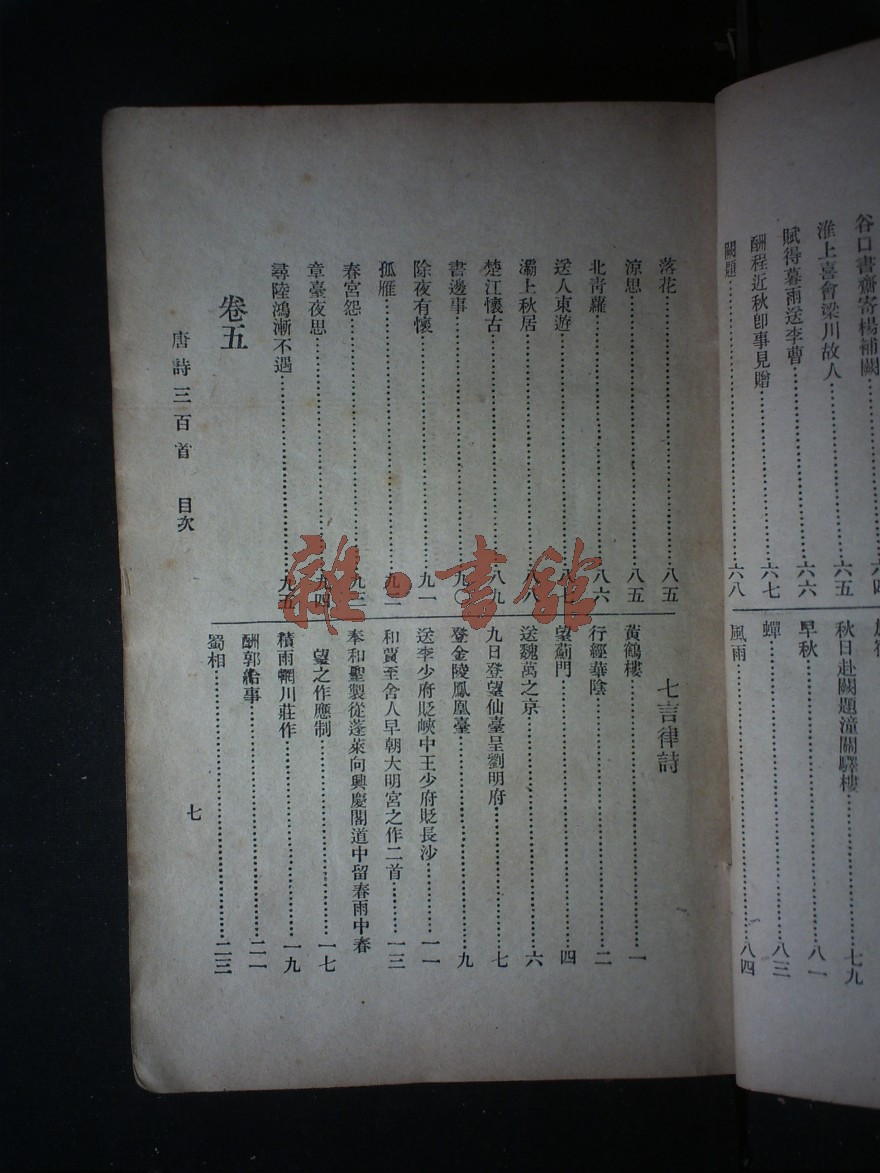 谷口書齋寄楊補闕
淮上喜會梁川故人……六五
賦得暮雨送李曹……六六
酬程近秋卽事見贈……六七
闕題……六八
秋日赴闕題潼關驛樓……七九
早秋……八一
蟬……八三
風雨……八四
落花……八五
涼思……八五
北青蘿……八六
送人東遊……八七
灞上秋居……八八
楚江懷古……八九
書邊事……九〇
除夜有懷……九一
孤雁……九二
春宮怨……九三
章臺夜思……九四
尋陸鴻漸不遇……九五
卷五
七言律詩
黃鶴樓……一
行經華陰……二
望薊門……四
送魏萬之京……六
九日登望仙臺呈劉明府……七
登金陵鳳凰臺……九
送李少府貶峽中王少府貶長沙……一一
和賈至舍人早朝大明宮之作二首……一三
奉和聖製從蓬萊向興慶閣道中留春雨中春
望之作應制……一七
積雨輞川莊作……一九
酬郭給事……二一
蜀相……二三
唐詩三百首 目次
七
雜·書館